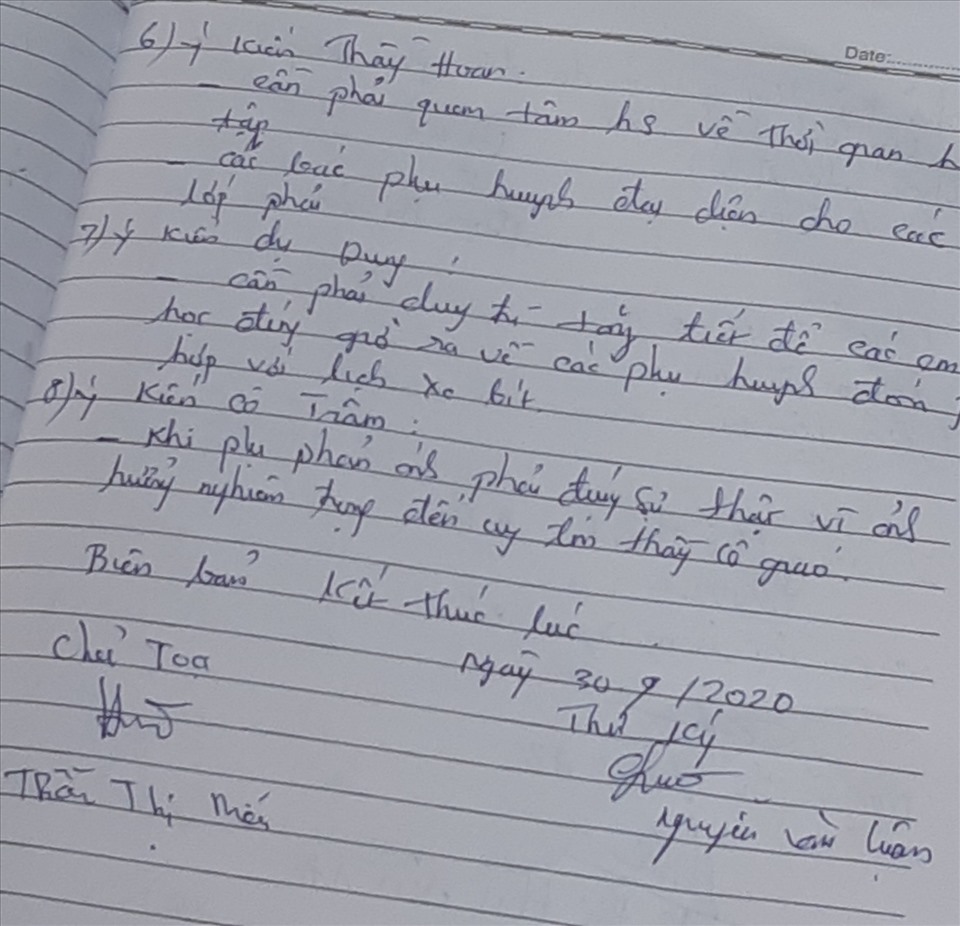 Date:
6) ý kiến Thầy Hoan.
- cần phải quan tâm hs về thời gian h
tập
- các bác phụ huynh đại diện cho các
lớp phải
7) ý kiến dự Duy :
- cần phải duy trì từng tiết để các em
học đúng giờ ra về các phụ huynh đón
hợp với lịch xe bít.
8) ý kiến cô Trâm :
- Khi phụ phản ánh phải đúng sự thật vì ảnh
hưởng nghiêm trọng đến uy tín thầy cô giáo.
Biên bản kết thúc lúc
ngày 30 9 /2020
Chủ Toạ
Thư ký
Trần Thị Mến
Nguyễn Văn Luân